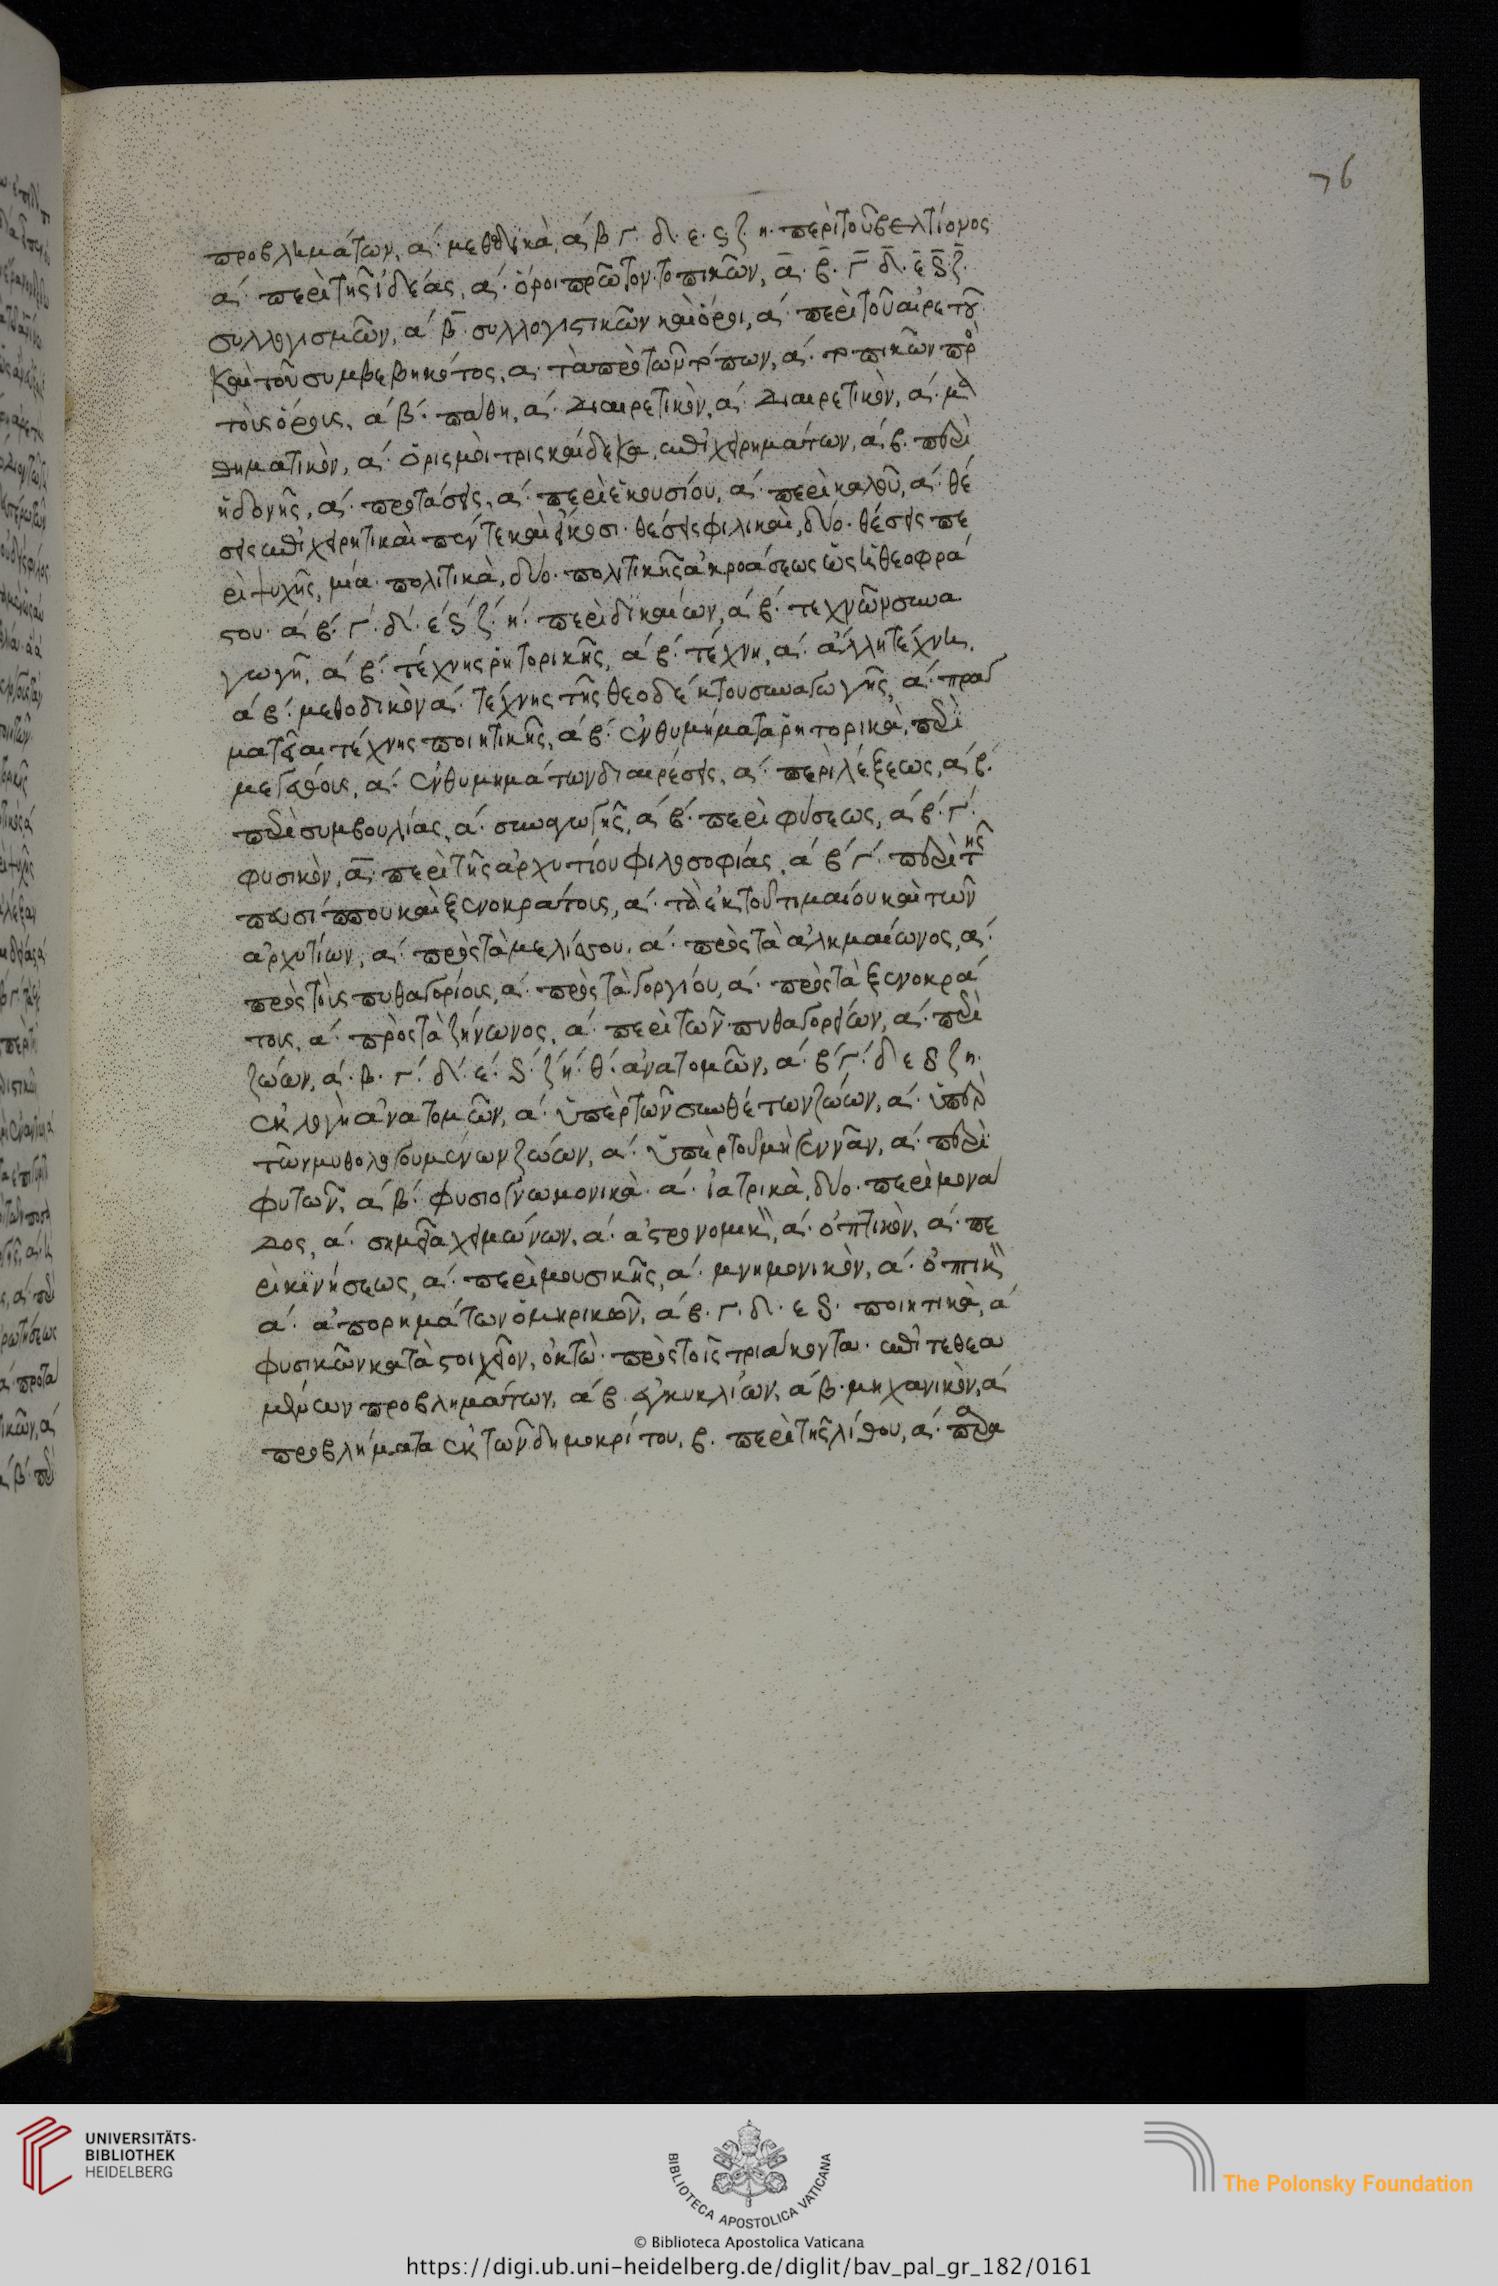 76
προβλημάτων, α´· μεθοδικὰ, α´ β γ· δ· ε· ς ζ· η· περὶ τοῦ βελτίονος
α´· περὶ τῆς ἰδέας, α´· ὅροι πρῶτον· τοπικῶν, ᾱ· β̄· γ̄ δ̄· ε̄ ς̄· ζ̄·
συλλογισμῶν, α´ β̄ συλλογιστικῶν καὶ ὅροι, α´· περὶ τοῦ αἱρετοῦ
καὶ τοῦ συμβεβηκότος, α· τὰ πρὸ τῶν τόπων, α´· τοπικῶν πρὸ
τοὺς ὅρους, α´ β´· πάθη, α´· διαιρετικὸν, α´· διαιρετικὸν, α´· μα
θηματικὸν, α´· ὁρισμοὶ τρισκαίδεκα, ἐπιχειρημάτων, α´· β· περὶ
ἡδονῆς, α´· προτάσεις, α´· περὶ ἑκουσίου, α´· περὶ καλοῦ, α´· θέ
σεις ἐπιχειρητικαὶ πέντε καὶ εἴκοσι· θέσεις φιλικαὶ, δύο· θέσεις πε
ρὶ ψυχῆς, μία· πολιτικὰ, δύο· πολιτικῆς ἀκροάσεως ὡς ἡ θεοφρά
στου· α´ β´· γ´· δ´· ε´ ς´ ζ´· η´· περὶ δικαίων, α´ β´· τεχνῶν συνα
γωγῆ, α´ β´· τέχνης ῥητορικῆς, α´ β´· τέχνη, α´· ἄλλη τέχνη,
α´ β´· μεθοδικὸν α´· τέχνης τῆς θεοδέκτου συναγωγῆς, α´· πραγ
ματεῖαι τέχνης ποιητικῆς, α´ β´· ἐνθυμήματα ῥητορικὰ, περὶ
μεγέθους, α´· ἐνθυμημάτων διαιρέσεις, α´· περὶ λέξεως, α´ β´·
περὶ συμβουλίας, α´· συναγωγῆς, α´ β´· περὶ φύσεως, α´ β´· γ´·
φυσικὸν, ᾱ· περὶ τῆς ἀρχυτίου φιλοσοφίας, α´ β´ γ´· περὶ τῆς
πευσίππου καὶ ξενοκράτους, α´· τὰ ἐκ τοῦ τιμαίου καὶ τῶν
ἀρχυτίων, α´· πρὸς τὰ μελίσσου, α´· πρὸς τὰ ἀλκμαίωνος, α´·
πρὸς τοὺς πυθαγορίους, α´· πρὸς τὰ γοργίου, α´· πρὸς τὰ ξενοκρά
τους, α´· πρὸς τὰ ζήνωνος, α´· περὶ τῶν πυθαγορείων, α´· περὶ
ζώων, α´· β· γ´· δ´· ε´· ς´· ζ´ η´· θ´· ἀνατομῶν, α´· β´ γ´· δ ε ς ζ η·
ἐκλογὴ ἀνατομῶν, α´· ὑπὲρ τῶν συνθέτων ζώων, α´· ὑπὲρ
τῶν μυθολογουμένων ζώων, α´· ὑπὲρ τοῦ μὴ γεννᾶν, α´· περὶ
φυτῶν, α´ β´· φυσιογνωμονικὰ· α´· ἰατρικὰ, δύο· περὶ μονά
δος, α´· σημεῖα χειμώνων, α´· ἀστρονομικὸν, α´· ὀπτικὸν, α´· πε
ρὶ κινήσεως, α´· περὶ μουσικῆς, α´· μνημονικὸν, α´· ὀπτικ
α´· ἀπορημάτων ὁμηρικῶν, α´ β· γ· δ· ε ς· ποιητικὰ, α´
φυσικῶν κατὰ στοιχεῖον, ὀκτὼ· πρὸς τοῖς τριάκοντα· ἐπιτεθεα
μένων προβλημάτων, α´ β· ἐγκυκλίων, α´ β· μηχανικὸν, α´
προβλήματα ἐκ τῶν δημοκρίτου, β· περὶ τῆς λίθου, α´· παρα
UNIVERSITÄTS-
BIBLIOTHEK
HEIDELBERG
BIBLIOTECA APOSTOLICA VATICANA
© Biblioteca Apostolica Vaticana
The Polonsky Foundation
https://digi.ub.uni-heidelberg.de/diglit/bav_pal_gr_182/0161